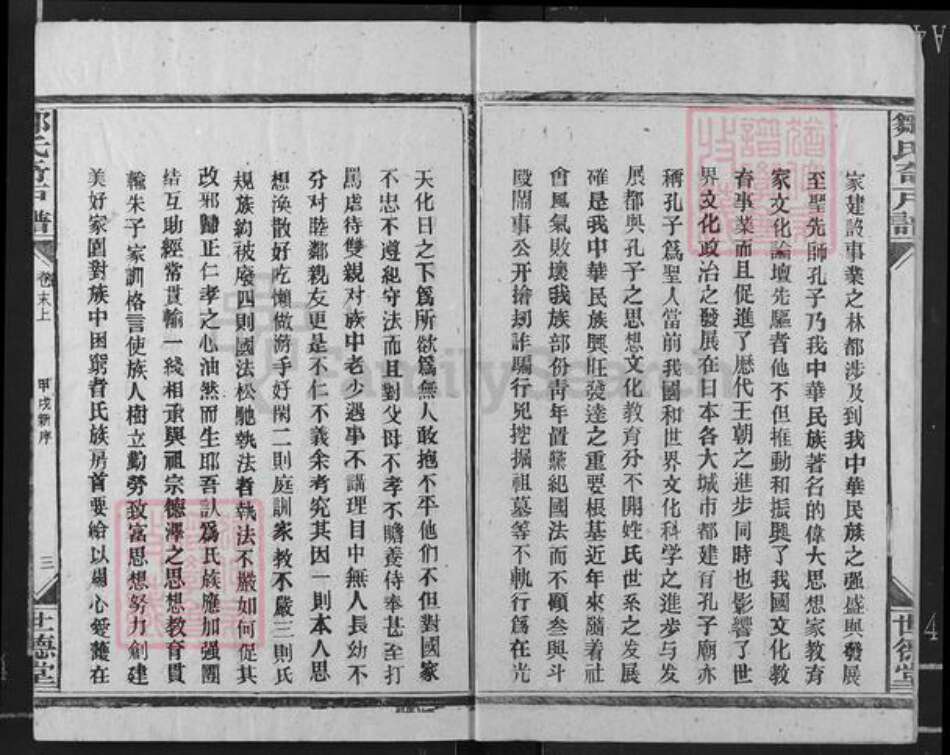 家建設事業之林都涉及到我中華民族之强盛與發展
至聖先師孔子乃我中華民族著名的偉大思想家教育
家文化論壇先驅者他不但推動和振興了我國文化教
育事業而且促進了歷代王朝之進步同時也影響了世
界文化政治之發展在日本各大城市都建有孔子廟亦
稱孔子爲聖人當前我國和世界文化科学之進步与发
展都與孔子之思想文化教育分不開姓氏世系之发展
確是我中華民族興旺發達之重要根基近年來隨着社
會風氣敗壞我族部份青年置黨紀國法而不顧叁與斗
毆鬧事公开搶刼詐騙行兇挖掘祖墓等不軌行爲在光
天化日之下爲所欲爲無人敢抱不平他们不但對國家
不忠不遵紀守法而且對父母不孝不贍養侍奉甚至打
罵虐待雙親对族中老少遇事不講理目中無人長幼不
分对陸鄰親友更是不仁不義余考究其因一則本人思
想渙散好吃懶做游手好閑二則庭訓家教不嚴三則氏
規族約被廢四則國法松馳執法者執法不嚴如何促其
改邪歸正仁孝之心油然而生耶吾认爲氏族應加强團
结互助經常貫輸一綫相承與祖宗德澤之思想教育貫
輸朱子家訓格言使族人樹立勤勞致富思想努力創建
美好家園對族中困窮者氏族房首要給以關心愛護在
卷末上
甲戌新序
三
世德堂
FamilySearch